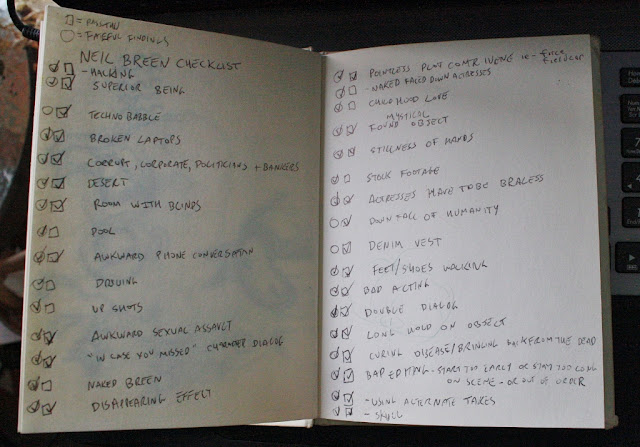 = PASS THRU
= FATEFUL FINDINGS
NEIL BREEN CHECKLIST
- HACKING
SUPERIOR BEING
TECHNO BABBLE
BROKEN LAPTOPS
CORRUPT, CORPORATE, POLITICIANS + BANKERS
DESERT
ROOM WITH BLINDS
POOL
AWKWARD PHONE CONVERSATION
DRIVING
UP SHOTS
AWKWARD SEXUAL ASSAULT
"IN CASE YOU MISSED" CHARACTER DIALOG
NAKED BREEN
DISAPPEARING EFFECT
POINTLESS PLOT CONTRIVENE IE -
- NAKED FACED DOWN ACTRESSES
CHILDHOOD LOVE
MYSTICAL
FOUND OBJECT
STILLNESS OF HANDS
STOCK FOOTAGE
ACTRESSES HAVE TO BE BRALESS
DOWNFALL OF HUMANITY
DENIM VEST
FEET/SHOES WALKING
BAD ACTING
DOUBLE DIALOG
LONG HOLD ON OBJECT
CURING DISEASE/BRINGING BACK FROM THE DEAD
BAD EDITING - START TOO EARLY OR STAY TOO LONG
ON SCENE - OR OUT OF ORDER
- USING ALTERNATE TAKES
- SKULL